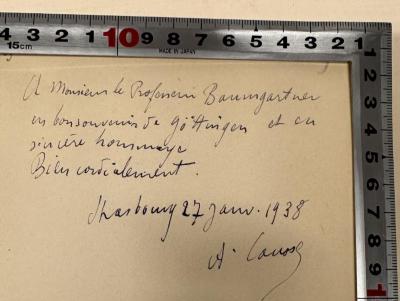 4 3 2 1 10 9 8 7 6 5 4 3 2 1
15cm
MADE IN JAPAN
1 2 3 4 5 6 7 8 9 1
A Monsieur le Professeur Baumgartner
en bon souvenir de Göttingen et en
sincère hommage
Bien cordialement.
Strasbourg 27 janv. 1938
A. Causse